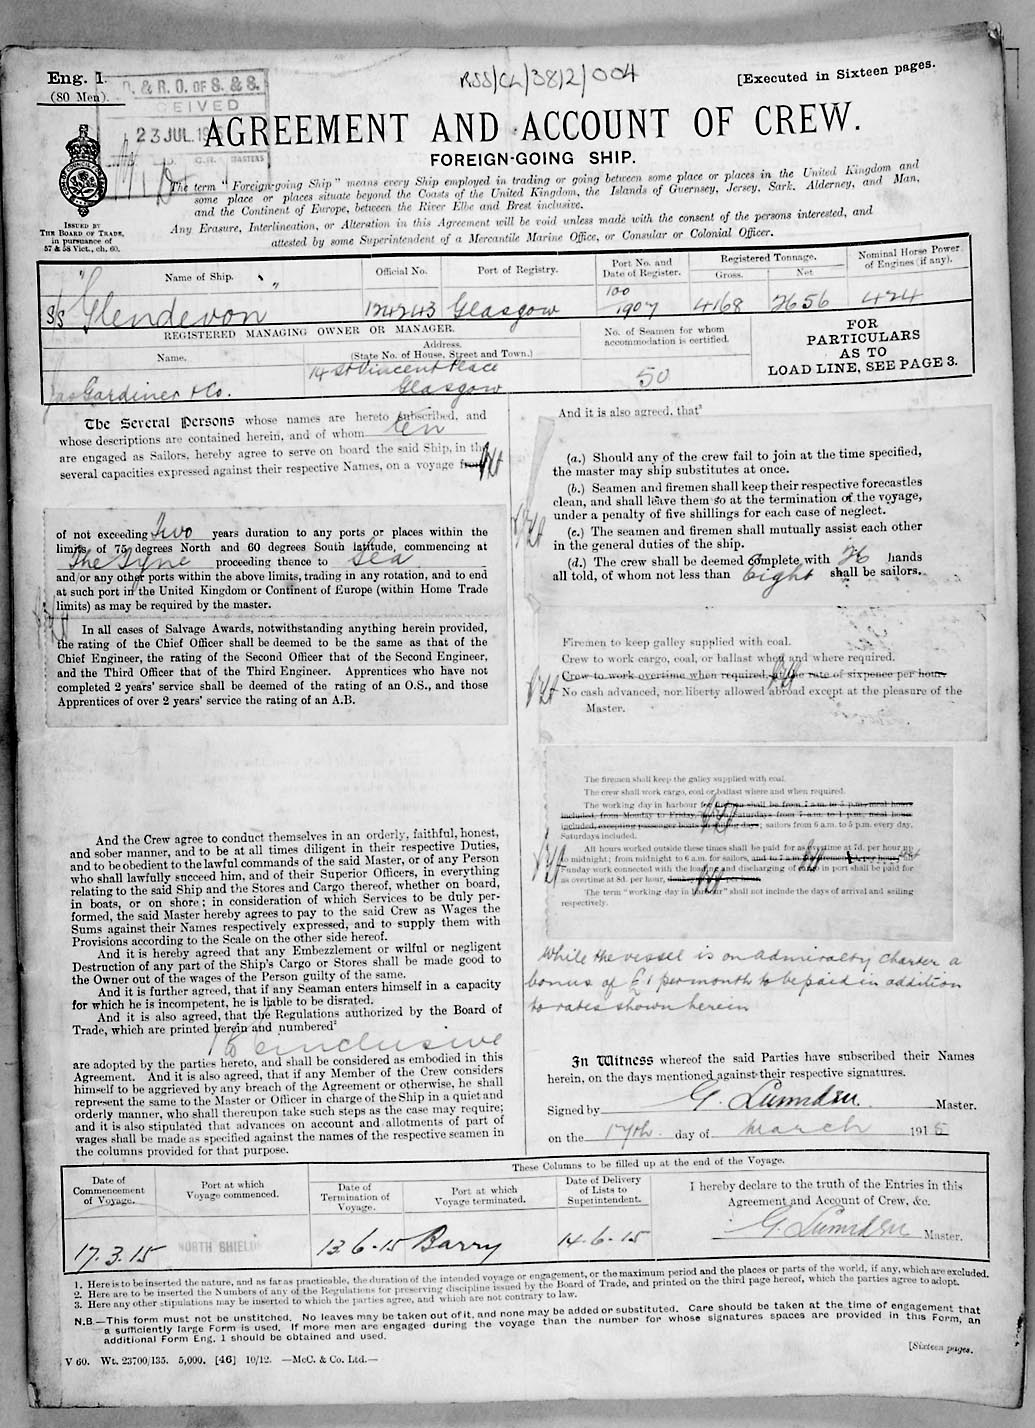 Eng. 1.
(80 Men).
RSS/CL/38/2/004
[Executed in Sixteen pages.
& R. O. OF S. & S.
CEIVED
23 JUL 19
AGREEMENT AND ACCOUNT OF CREW.
FOREIGN-GOING SHIP.
The term "Foreign-going Ship" means every Ship employed in trading or going between some place or places in the United Kingdom and
some place or places situate beyond the Coasts of the United Kingdom, the Islands of Guernsey, Jersey, Sark, Alderney, and Man,
and the Continent of Europe, between the River Elbe and Brest inclusive.
Any Erasure, Interlineation, or Alteration in this Agreement will be void unless made with the consent of the persons interested, and
attested by some Superintendent of a Mercantile Marine Office, or Consular or Colonial Officer.
ISSUED BY
THE BOARD OF TRADE,
in pursuance of
57 & 58 Vict., ch. 60.
Name of Ship.
Official No.
Port of Registry.
Port No. and
Date of Register.
Registered Tonnage.
Gross.
Net.
Nominal Horse Power
of Engines (if any).
S/S Glendevon
124243
Glasgow
100
1907
4168
2656
424
REGISTERED MANAGING OWNER OR MANAGER.
Name.
Address.
(State No. of House, Street and Town.)
No. of Seamen for whom
accommodation is certified.
FOR
PARTICULARS
AS TO
LOAD LINE, SEE PAGE 3.
Jas Gardiner & Co.
14 St Vincent Place
Glasgow
50
The Several Persons whose names are hereto subscribed, and
whose descriptions are contained herein, and of whom ten
are engaged as Sailors, hereby agree to serve on board the said Ship, in the
several capacities expressed against their respective Names, on a voyage from
of not exceeding Two years duration to any ports or places within the
limits of 75 degrees North and 60 degrees South latitude, commencing at
The Tyne proceeding thence to Sea
and/or any other ports within the above limits, trading in any rotation, and to end
at such port in the United Kingdom or Continent of Europe (within Home Trade
limits) as may be required by the master.
In all cases of Salvage Awards, notwithstanding anything herein provided,
the rating of the Chief Officer shall be deemed to be the same as that of the
Chief Engineer, the rating of the Second Officer that of the Second Engineer,
and the Third Officer that of the Third Engineer. Apprentices who have not
completed 2 years' service shall be deemed of the rating of an O.S., and those
Apprentices of over 2 years' service the rating of an A.B.
And the Crew agree to conduct themselves in an orderly, faithful, honest,
and sober manner, and to be at all times diligent in their respective Duties,
and to be obedient to the lawful commands of the said Master, or of any Person
who shall lawfully succeed him, and of their Superior Officers, in everything
relating to the said Ship and the Stores and Cargo thereof, whether on board,
in boats, or on shore; in consideration of which Services to be duly per-
formed, the said Master hereby agrees to pay to the said Crew as Wages the
Sums against their Names respectively expressed, and to supply them with
Provisions according to the Scale on the other side hereof.
And it is hereby agreed that any Embezzlement or wilful or negligent
Destruction of any part of the Ship's Cargo or Stores shall be made good to
the Owner out of the wages of the Person guilty of the same.
And it is further agreed, that if any Seaman enters himself in a capacity
for which he is incompetent, he is liable to be disrated.
And it is also agreed, that the Regulations authorized by the Board of
Trade, which are printed herein and numbered²
inclusive
are adopted by the parties hereto, and shall be considered as embodied in this
Agreement. And it is also agreed, that if any Member of the Crew considers
himself to be aggrieved by any breach of the Agreement or otherwise, he shall
represent the same to the Master or Officer in charge of the Ship in a quiet and
orderly manner, who shall thereupon take such steps as the case may require;
and it is also stipulated that advances on account and allotments of part of
wages shall be made as specified against the names of the respective seamen in
the columns provided for that purpose.
And it is also agreed, that³
(a.) Should any of the crew fail to join at the time specified,
the master may ship substitutes at once.
(b.) Seamen and firemen shall keep their respective forecastles
clean, and shall leave them so at the termination of the voyage,
under a penalty of five shillings for each case of neglect.
(c.) The seamen and firemen shall mutually assist each other
in the general duties of the ship.
(d.) The crew shall be deemed complete with 26 hands
all told, of whom not less than Eight shall be sailors.
Firemen to keep galley supplied with coal.
Crew to work cargo, coal, or ballast when and where required.
Crew to work overtime when required, at the rate of sixpence per hour.
No cash advanced, nor liberty allowed abroad except at the pleasure of the
Master.
The firemen shall keep the galley supplied with coal.
The crew shall work cargo, coal or ballast where and when required.
The working day in harbour for firemen shall be from 7 a.m. to 5 p.m., meal hours
included, from Monday to Friday, Saturdays from 7 a.m. to 1 p.m., meal hours
included, excepting passenger boats days; sailors from 6 a.m. to 5 p.m. every day,
Saturdays included.
All hours worked outside these times shall be paid for as overtime at 7d. per hour up
to midnight; from midnight to 6 a.m. for sailors, and to 7 a.m. per hour.
Sunday work connected with the loading and discharging of cargo in port shall be paid for
as overtime at 8d. per hour,
The term "working day in harbour" shall not include the days of arrival and sailing
respectively.
While the vessel is on Admiralty Charter a
bonus of £1 per month to be paid in addition
to rates shown herein
In Witness whereof the said Parties have subscribed their Names
herein, on the days mentioned against their respective signatures.
Signed by G. Lumsden Master.
on the 17th day of March 1915
These Columns to be filled up at the end of the Voyage.
Date of
Commencement
of Voyage.
Port at which
Voyage commenced.
Date of
Termination of
Voyage.
Port at which
Voyage terminated.
Date of Delivery
of Lists to
Superintendent.
I hereby declare to the truth of the Entries in this
Agreement and Account of Crew, &c.
17.3.15
NORTH SHIELDS
13-6-15
Barry
14-6-15
G. Lumsden Master.
1. Here is to be inserted the nature, and as far as practicable, the duration of the intended voyage or engagement, or the maximum period and the places or parts of the world, if any, which are excluded.
2. Here are to be inserted the Numbers of any of the Regulations for preserving discipline issued by the Board of Trade, and printed on the third page hereof, which the parties agree to adopt.
3. Here any other stipulations may be inserted to which the parties agree, and which are not contrary to law.
N.B.—This form must not be unstitched. No leaves may be taken out of it, and none may be added or substituted. Care should be taken at the time of engagement that
a sufficiently large Form is used. If more men are engaged during the voyage than the number for whose signatures spaces are provided in this Form, an
additional Form Eng. 1 should be obtained and used.
V 60. Wt. 23700/135. 5,000. [46] 10/12. —McC. & Co. Ltd.—
[Sixteen pages.